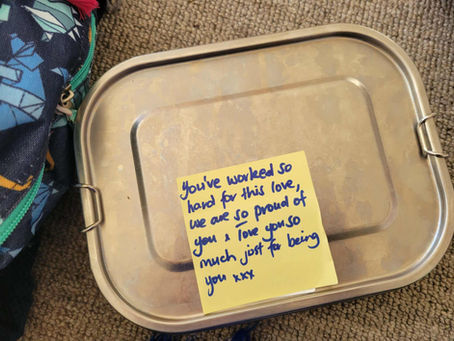 you've worked so
hard for this love,
we are so proud of
you & love you so
much just for being
you xxx